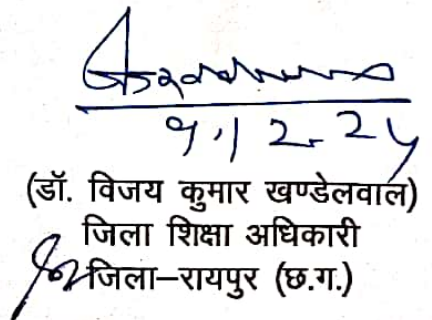 9.12.24
(डॉ. विजय कुमार खण्डेलवाल)
जिला शिक्षा अधिकारी
जिला–रायपुर (छ.ग.)